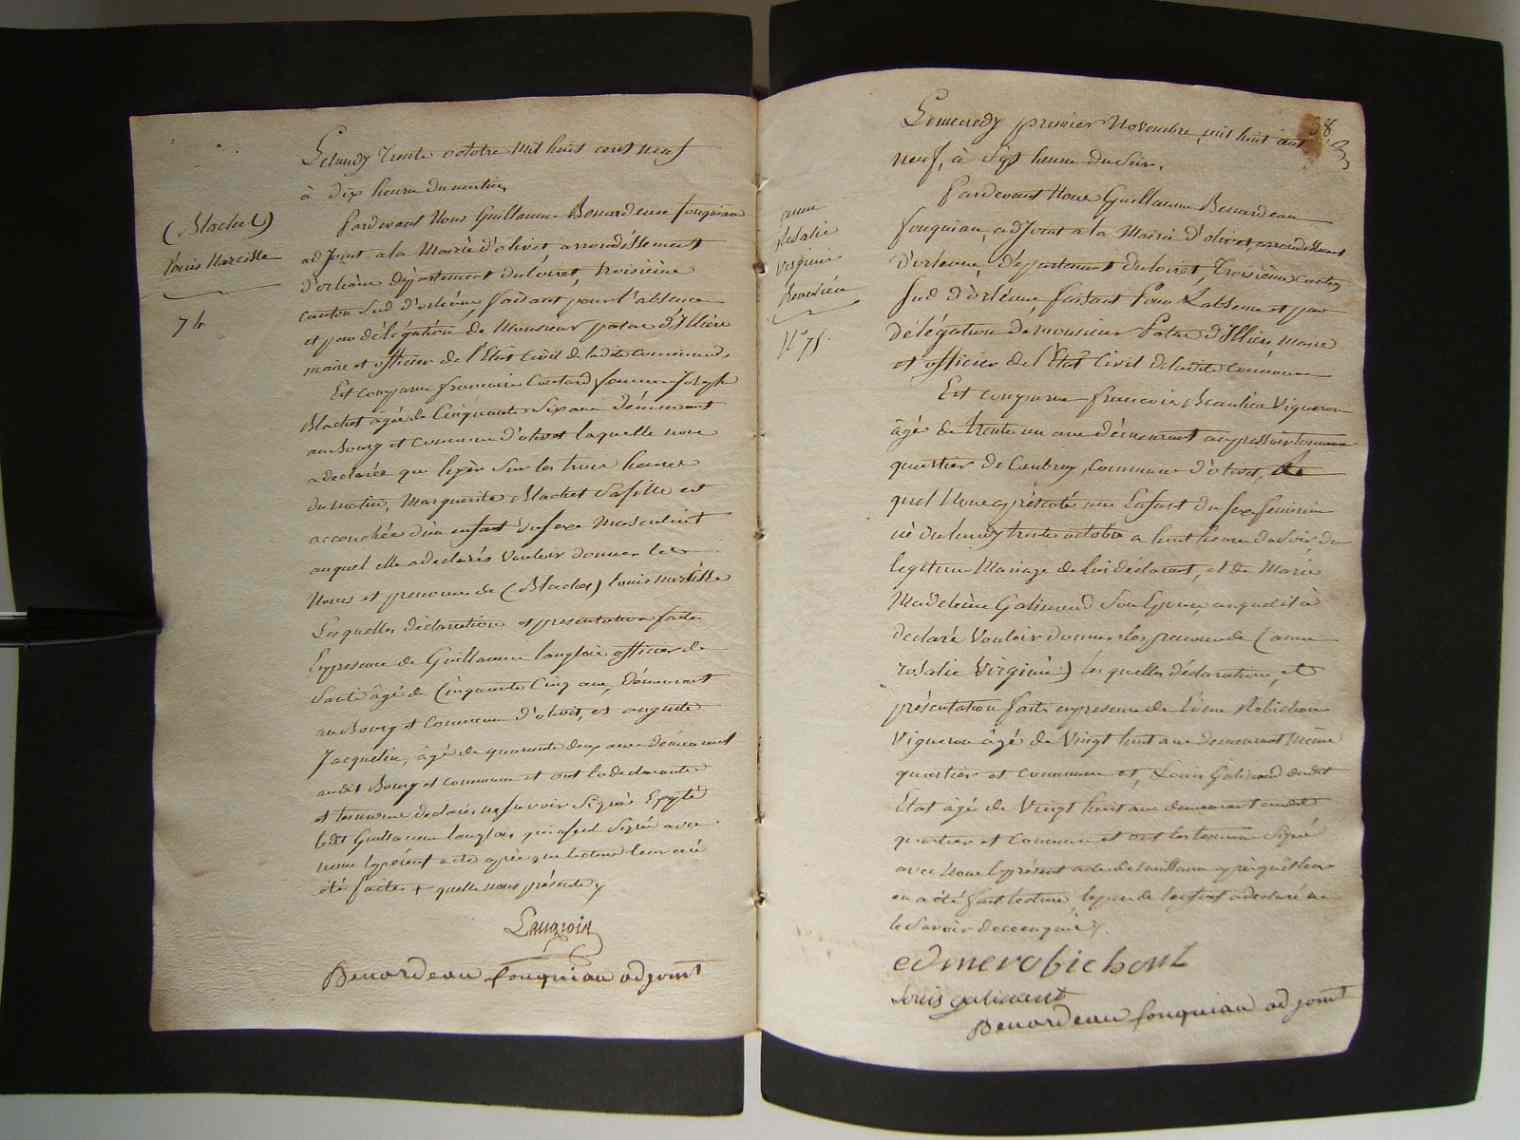 (Blachet)
Louis Narcisse
74
Le lundy trente octobre mil huit cent neuf
à dix heures du matin,
Pardevant Nous Guillaume Benardeau fouqueau
adjoint a la Mairie d'olivet, arrondissement
d'orléans Département du loiret, troisième
canton Sud d'orléans, faisant pour l'absence
et par délégation de Monsieur patas d'Illiers
maire et officier de l'Etat Civil de ladite commune.
Est comparue francoise Coutard femme Joseph
Blachet agée de Cinquante Six ans demeurant
au Bourg et commune d'olivet laquelle nous
a declarée que hyer sur les trois heures
du matin, Marguerite Blachet Sa fille est
accouchée d'un enfant du sexe Masculint
auquel elle a declarés Vouloir donner les
Noms et prenoms de (Blachet) louis narcisse
Lesquelles déclaration et presentation faites
En presence de Guillaume langlois officier de
Santé âgé de Cinquante Cinq ans, demeurant
au Bourg et Commune d'olivet, et auguste
Jacquelin, âgé de quarante deux ans demeurant
audit Bourg et commune et ont la declarante
et temoin declarés ne savoir Signés Excepté
ledit Guillaume langlois, qui a seul Signé avec
nous le présent acte après que lecture leur en a
été faite + quelle nous présente
Langlois
Benardeau fouquiau adjoint
anne
Rosalie
Virginie
Beaulieu
N° 75.
58
Le mercredy premier Novembre, mil huit cent
neuf, à Sept heures du Soir.
Pardevant Nous Guillaume Benardeau
fouquiau, adjoint a la Mairie d'olivet arrondissement
d'orléans, Département du loiret, troisième canton
Sud d'Orléans faisant Pour L'absence et par
délégation de monsieur Patas d'Illiers Maire
et officier de l'Etat Civil de ladite Commune
Est comparu francois Beaulieu Vigneron
âgé de trente un ans demeurant au pressoir
quartier de Caubray, Commune d'olivet, le
quel Nous a présenté un Enfant du sexe féminin
né du lundy trente octobre a huit heures du Soir du
legitime Mariage de lui déclarant, et de Marie
Madeleine Galimard Son Epouse, auquel il à
declaré Vouloir donner les prenoms de (anne
rosalie Virginie) les quelles déclaration, et
présentation faite en presence de Edme Robichon
Vigneron âgé de Vingt huit ans demeurant même
quartier et commune et, Louis Galimard dudit
Etat âgé de Vingt huit ans demeurant audit
quartier et Commune et ont les temoins Signé
avec Nous le présent acte de Naissance après qu'il leur
en a été fait lecture, le pere de l'enfant a declaré ne
le Savoir de ce enquis.
edme robichont
Louis galimant
Benardeau fouquiau adjoint